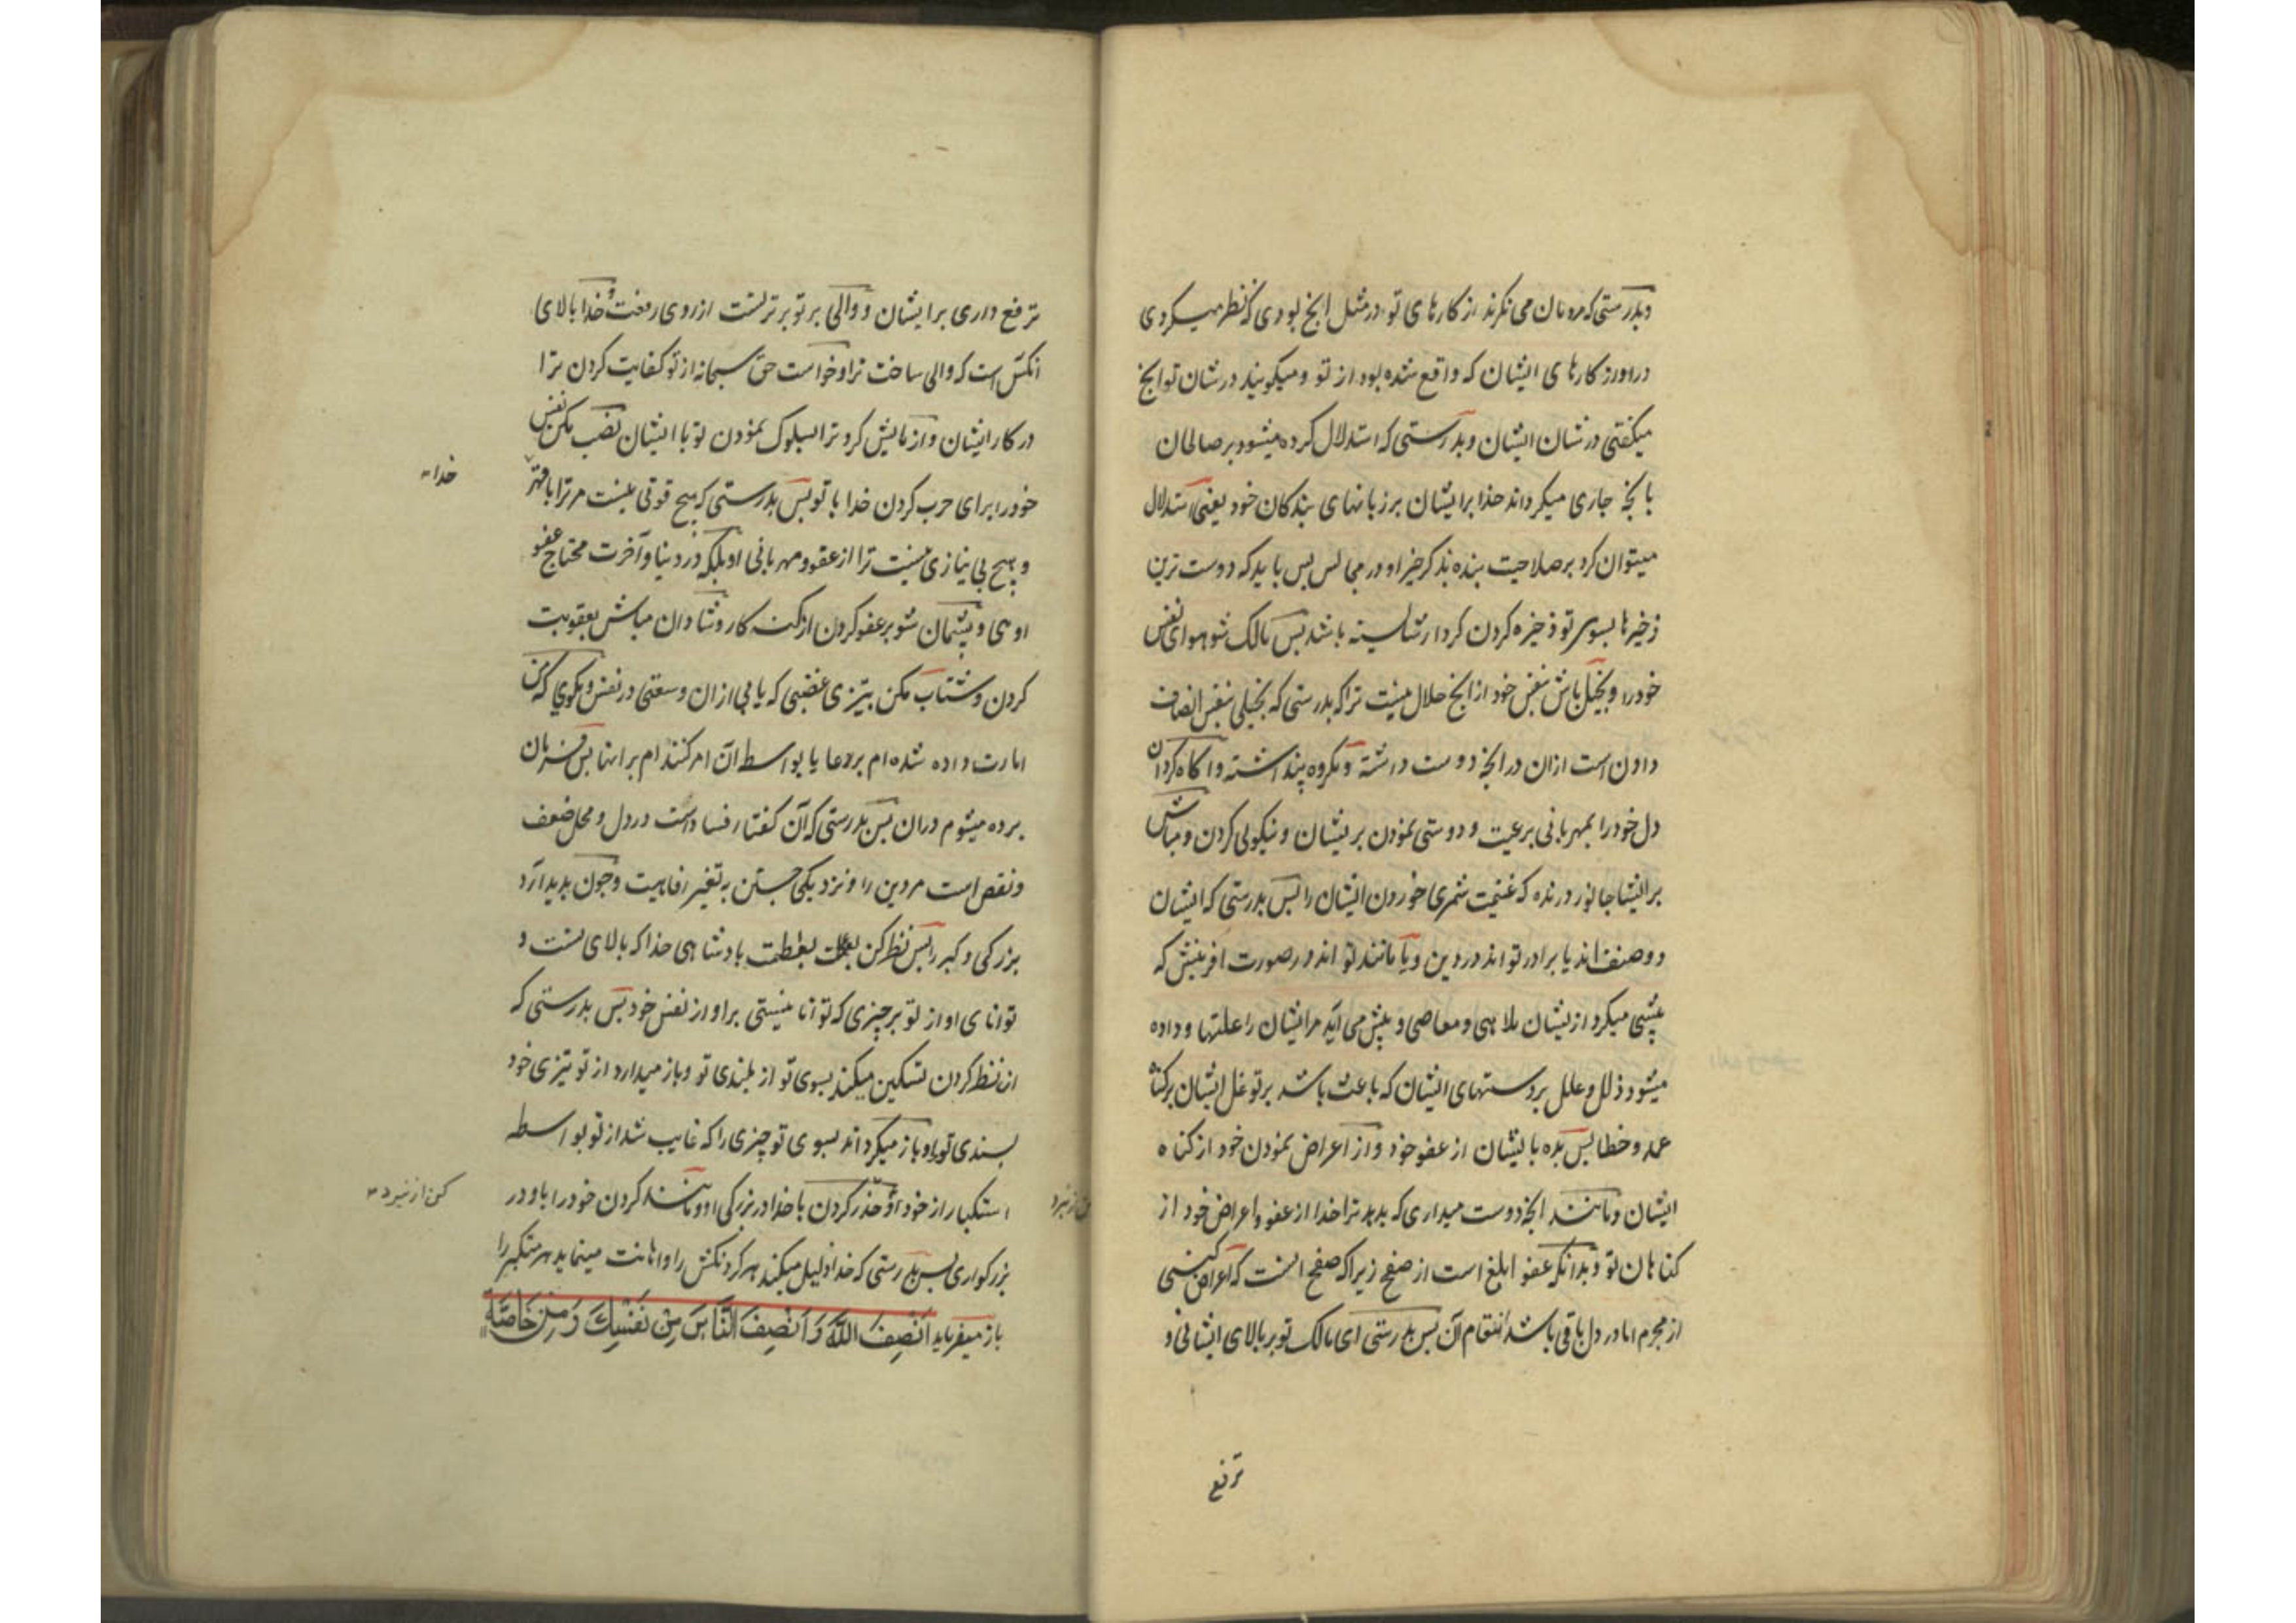 وبدرستی که مردمان می نکرند از کارهای تو در مثل انچ بودی که نظر میکردی
دراورز کارهای ایشان که واقع شده بود از تو و میکویند در شان تو انچ
میکفتی در شان ایشان و بدرستی که استدلال کرده میشود بر صالحان
بانچه جاری میکرداند خدا بر ایشان بر زبانهای بندکان خود یعنی استدلال
میتوان کرد بر صلاحیت بنده بذکر خیر او در مجالس پس باید که دوست ترین
ذخیرها بسوی تو ذخیره کردن کردار شایسته باشد پس مالک شو هوای نفس
خود را و بخیل باش بنفس خود از انچ حلال نیست ترا که بدرستی که بخیلی بنفس انصاف
دادن است ازان در انچه دوست داشته و مکروه پنداشته و اکاه کردان
دل خود را بمهربانی بر رعیت و دوستی نمودن بر ایشان و نیکویی کردن و مباش
بر ایشا جانور درنده که غنیمت شمری خوردن ایشان را پس بدرستی که ایشان
دو صنف اند یا برادر تو اند در دین و یا مانند تو اند در صورت افرینش که
پیشی میکرد از یشان ملاهی و معاصی و پیش می آید مر ایشان را علتها و داده
میشود ذلل و علل بر دستهای ایشان که باعث باشد بر تو غل ایشان برکناه
عمد و خطا پس بده با یشان از عفو خود و از اعراض نمودن خود از کناه
ایشان و مانند انچه دوست میداری که بدهد ترا خدا از عفو و اعراض خود از
کناهان تو و بدانکه عفو ابلغ است از صفح زیرا که صفح انست که اعراض کنی
از مجرم اما در دل باقی باشد انتقام آن پس بدرستی ای مالک تو بر بالای ایشانی و
ترفع
ترفع داری بر ایشان و والی بر تو برتر تست از روی رفعت و خدا بالای
انکس است که والی ساخت ترا و خواست حق سبحانه از تو کفایت کردن ترا
در کار ایشان و ازمایش کرد ترا بسلوک نمودن تو با ایشان نصب مکن نفس
خود را برای حرب کردن خدا با تو پس بدرستی که هیچ قوتی نیست مر ترا با قهر
خدا
و هیچ بی نیازی نیست ترا از عفو و مهربانی او بلکه در دنیا و آخرت محتاج عفو
اوئی و پشیمان شو بر عفو کردن از کنه کار و شادان مباش بعقوبت
کردن و شتاب مکن بتیزی غضبی که یابی ازان وسعتی در نفس و مکوی که من
امارت داده شده ام بر دعا یا بواسطه آن امر کننده ام بر انها پس فرمان
برده میشوم دران پس بدرستی که آن کفتار فساد است در دل و محل ضعف
و نقص است مر دین را و نزدیکی جستن به تغیر رفاهیت و چون پدید آرد
بزرکی و کبر را پس نظر کن بعظمت پادشاهی خدا که بالای تست و
توانای او از تو بر چیزی که توانا نیستی بر او از نفس خود پس بدرستی که
ان نظر کردن تسکین میکند بسوی تو از بلندی تو و باز میدارد از تو تیزی خود
پسندی تو را و باز میکرداند بسوی تو چیزی را که غایب شد از تو بواسطه
استکبار از خود و حذر کردن با خدا در بزرکی او و مانند کردن خود را با و در
کن از نبرد
بزرکواری پس بدرستی که خدا ذلیل میکند هر کردنکش را و اهانت مینماید هر متکبر را
باز میفرماید اَنْصِفِ اللّٰهَ وَاَنْصِفِ النَّاسَ مِنْ نَفْسِكَ وَمِنْ خَاصَّةِ